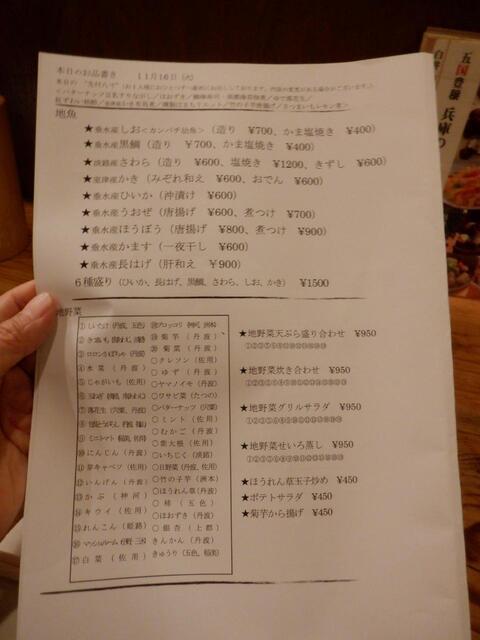 本日のお品書き　１１月１６日（火）
地魚
★垂水産しお＜カンパチ幼魚＞（造り　¥700、かま塩焼き　¥400）
★垂水産黒鯛（造り　¥700、かま塩焼き　¥400）
★淡路産さわら（造り　¥600、塩焼き　¥1200、きずし　¥600）
★室津産かき（みぞれ和え　¥600、おでん　¥600）
★垂水産ひいか（沖漬け　¥600）
★垂水産うおぜ（唐揚げ　¥600、煮つけ　¥700）
★垂水産ほうぼう（唐揚げ　¥800、煮つけ　¥900）
★垂水産かます（一夜干し　¥600）
★垂水産長はげ（肝和え　¥900）
６種盛り（ひいか、長はげ、黒鯛、さわら、しお、かき）　¥1500
地野菜
①しいたけ（丹波、五色）
④水菜（丹波）
⑤じゃがいも（佐用）
⑦落花生（宍粟、丹波）
⑨ミニトマト（稲美、佐用）
⑩にんじん（丹波）
⑪芽キャベツ（佐用）
⑫いんげん（丹波）
⑬かぶ（神河）
⑭キウイ（佐用）
⑮れんこん（姫路）
⑰白菜（佐用）
⑲菊芋（丹波）
⑳菊菜（丹波）
○クレソン（佐用）
○ゆず（丹波）
○ヤマノイモ（丹波）
○ワサビ菜（たつの）
○バターナッツ（宍粟）
○ミント（佐用）
○むかご（丹波）
○紫大根（佐用）
○いちじく（淡路）
○日野菜（丹波、佐用）
○竹の子芋（洲本）
○ほうれん草（丹波）
○柿（五色）
○ほおずき（丹波）
○銀杏（上郡）
きんかん（丹波）
きゅうり（五色、稲美）
★地野菜天ぷら盛り合わせ　¥950
★地野菜炊き合わせ　¥950
★地野菜グリルサラダ　¥950
★地野菜せいろ蒸し　¥950
★ほうれん草玉子炒め　¥450
★ポテトサラダ　¥450
★菊芋から揚げ　¥450
五国豊穣　兵庫の